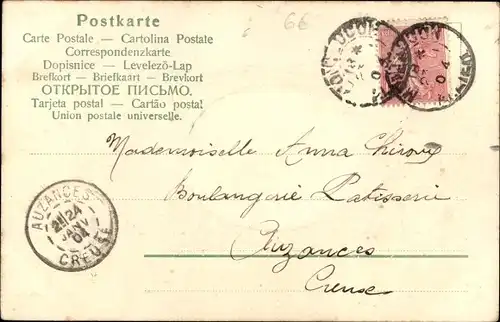 66
Postkarte
Carte Postale — Cartolina Postale
Correspondenzkarte
Dopisnice — Levelező-Lap
Brefkort — Briefkaart — Brevkort
ОТКРЫТОЕ ПИСЬМО.
Tarjeta postal — Cartão postal
Union postale universelle.
Mademoiselle Anna
Boulangerie Patisserie
Auzances
Creuse
AUZANCES
24
JANV
04
CREUSE